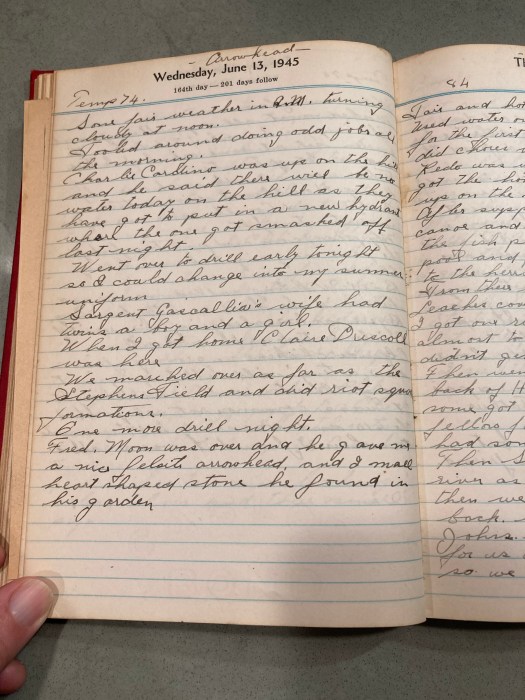 - Arrowhead -
Wednesday, June 13, 1945
164th day — 201 days follow
Temp 74.
Some fair weather in A.M. turning
cloudy at noon.
Fooled around doing odd jobs all
the morning.
Charlie Cardino was up on the hill
and he said there will be no
water today on the hill as they
have got to put in a new hydrant
where the one got smashed off
last night.
Went over to drill early tonight
so I could change into my summer
uniform
Sargent wife had
twins a boy and a girl.
When I got home Claire Driscoll
was here
We marched over as far as the
Stephens Field and did riot squad
formations.
One more drill night.
Fred. Moon was over and he gave me
a nice felsite arrowhead, and a small
heart shaped stone he found in
his garden
TH
84
Fair and hot
Used water on
for the first
did chores
Redo was
got the ho
up on the
After supp
canoe and
the fish p
pool and
to the herr
From there
Leaches
I got one
almost to
didn't ge
Then wen
back of H
some got
fellows f
had som
Then S
river as
then we
back.
Johns.
for us
so we